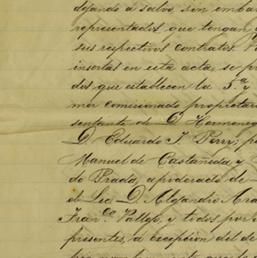 dejando a salvo, sin emba
representados que tengan
sus respectivos contratos.
insertas en esta acta, se pr
dos que establecen la 5ª y
mer comisionado propietar
sentante de D. Hermeneg
D. Eduardo J. Perry, p
Manuel de Castañeda y
de Prado, apoderado de
de Lic. D. Alejandro Ara
Franco. Vallejo, y todos por
presentes, a excepcion del de